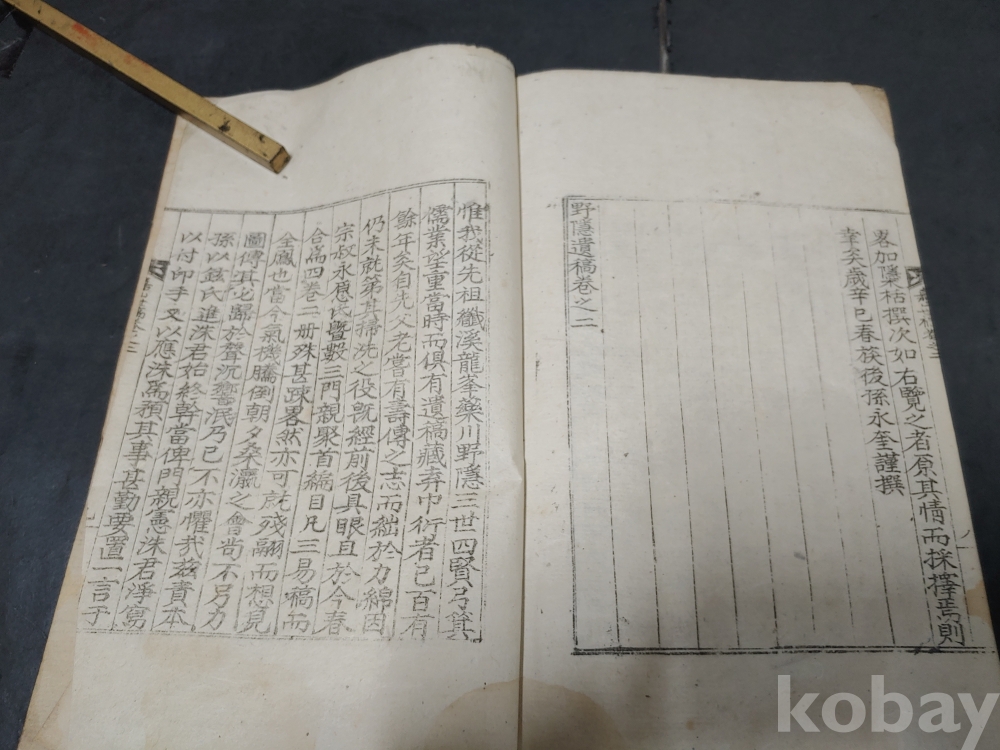 畧加檃栝撰次如右覽之者原其情而採擇焉則
幸矣歲辛巳春族後孫永奎謹撰
野隱遺稿卷之二
惟我從先祖纖溪龍峯藥川野隱三世四賢弓箕
儒業望重當時而俱有遺稿藏弆巾衍者已百有
餘年矣自先父老嘗有壽傳之志而絀於力綿因
仍未就第其掃洗之役旣經前後具眼且於今春
宗叔永悳氏曁數三門親聚首編目凡三易稿而
合爲四卷二冊殊甚疎畧然亦可以殘䎖而想見
全鳳也當今氣機騰倒朝夕桑瀛之會尙不另力
圖傳其必歸於聲沉響泯乃已不亦懼哉玆責本
孫以鉉氏進洙君始終幹當俾門親憲洙君淨寫
以付印手又以應洙爲預其事甚勤要置一言于
kobay